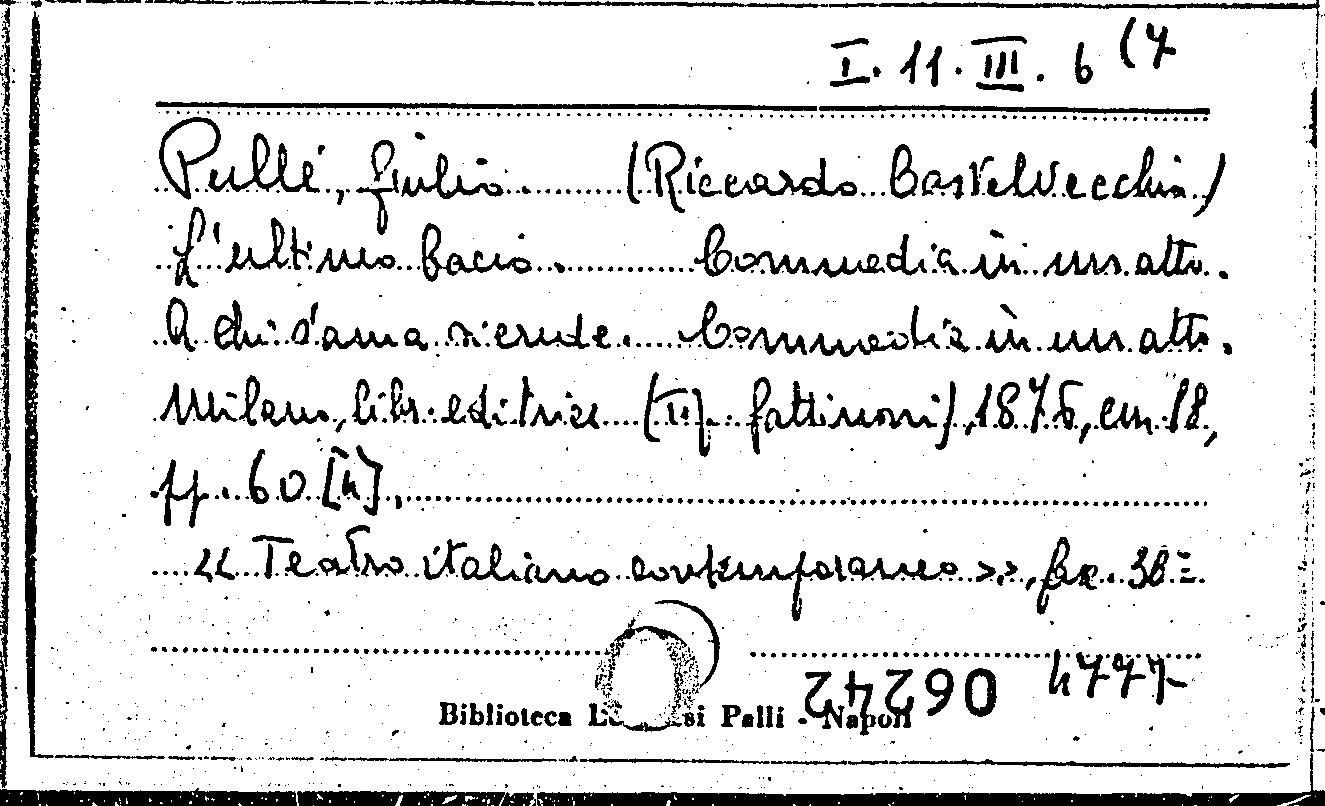 I. 11. III. 6 (7
Pullé, Giulio. (Riccardo Castelvecchio)
L'ultimo bacio. Commedia in un atto.
A chi s'ama si crede. Commedia in un atto.
Milano, libr. editrice (Tip. Gattinoni), 1875, cm. 18,
pp. 60 [4].
« Teatro italiano contemporaneo », fax. 38=
4777
06242
Biblioteca si Palli - Napoli